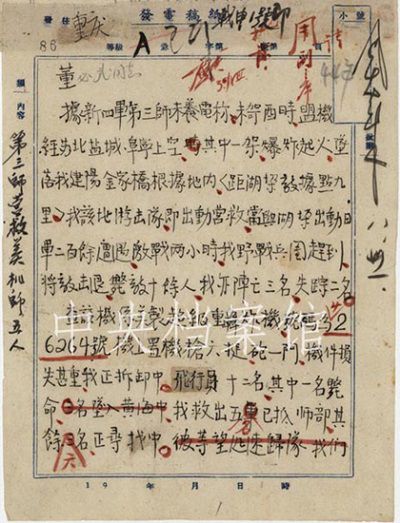 發往 重慶
發電稿紙
小號
86
等級 A
內容
第三師營救美機師五人
董必武同志
據新四軍第三師未養電稱未哿酉時盟機
經蘇北鹽城阜寧上空時其中一架爆炸起火人墜
落我建陽金家橋根據地內(距湖垛敵據點九
里)我該地游擊隊即出動營救當與湖垛出動日
軍二百餘遭遇激戰兩小時我野戰兵團趕到
將敵擊退斃敵十餘人我亦陣亡三名失踪二名
查該機係美製級重轟炸機號碼為
6264號機上置機槍六挺砲一門機件損
失甚重我正拆卸中飛行員十二名其中一名斃
命名墜入黃海中我救出五名已抵師部其
餘名正尋找中彼等望迅速歸隊我們
19 年 月 日 時
中央档案馆